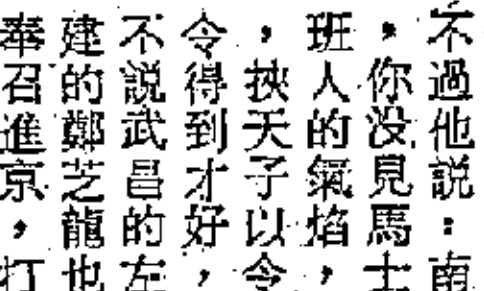 不過他説：南
，你没見馬士
班人的氣焰，
，挾天子以令
令得到才好，
不説武昌的左
建的鄭芝龍也
奉召進京，打